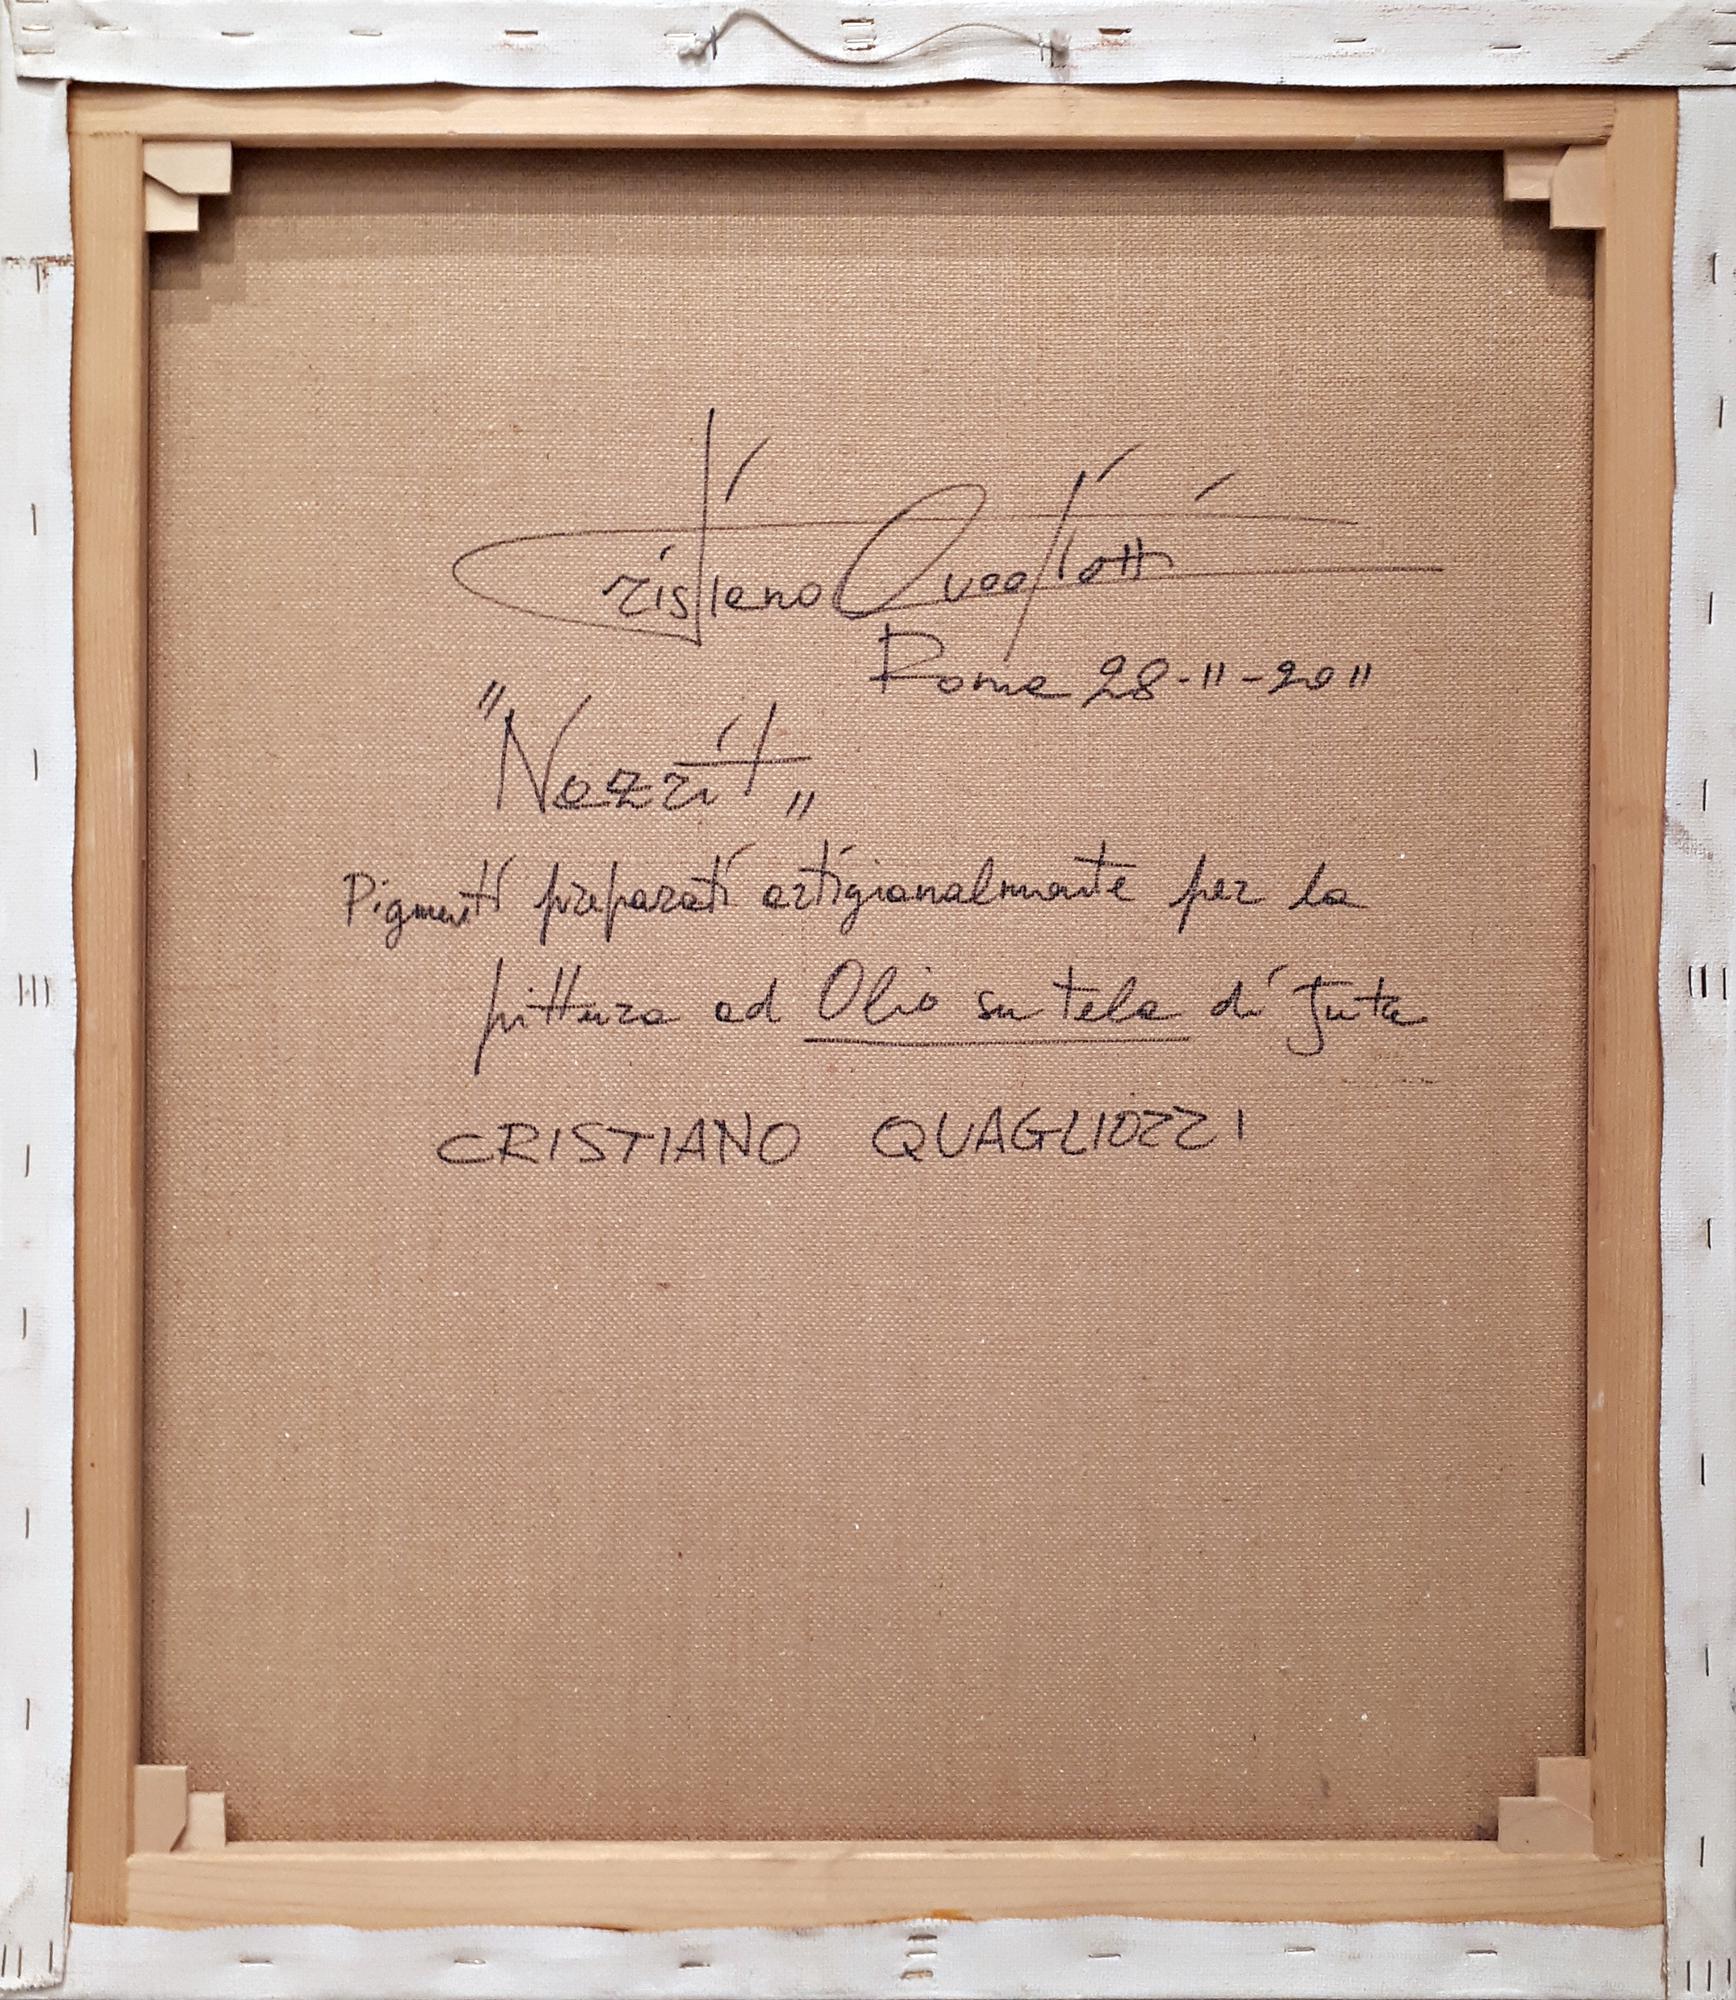 Cristiano Quagliozzi
Roma 28-11-2011
"Nozzit"
Pigmenti preparati artigianalmente per la
pittura ad Olio su tela di juta
CRISTIANO QUAGLIOZZI